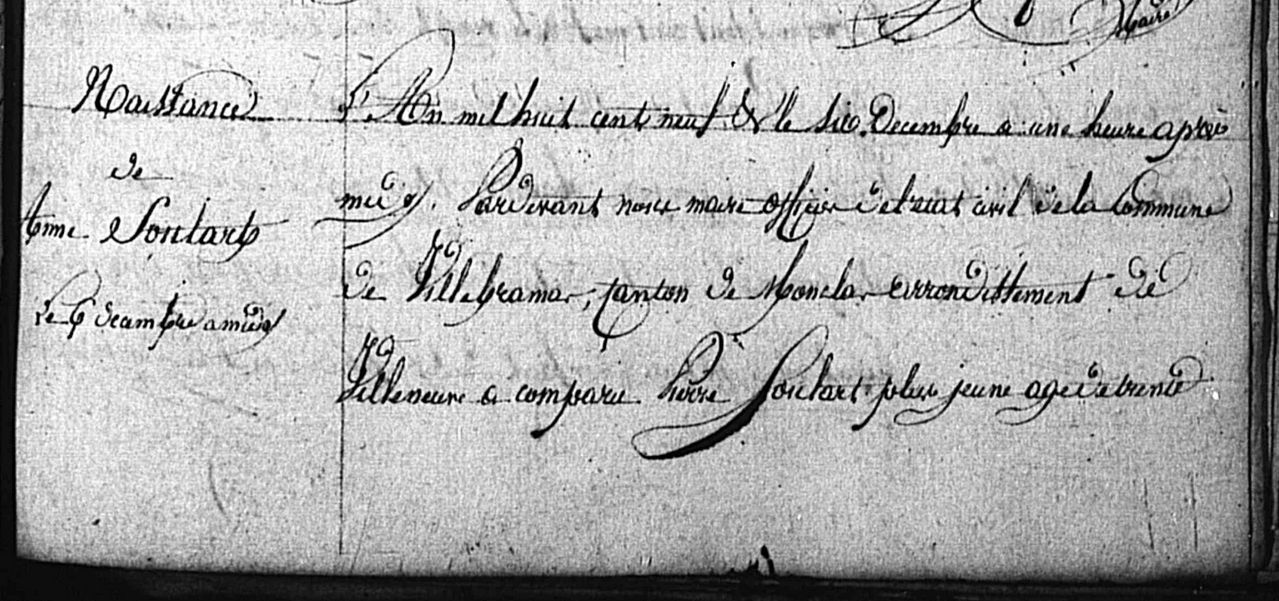 Maire
Naissance
de
Anne Soulart
Le 6 decembre a midy
L'An mil huit cent neuf & le six Decembre a une heure après
midy. Pardevant nous maire officier de l'etat civil de la Commune
de Villebramar, canton de Monclar arrondissement de
Villeneuve a comparu Pierre Soulart plus jeune age de trente